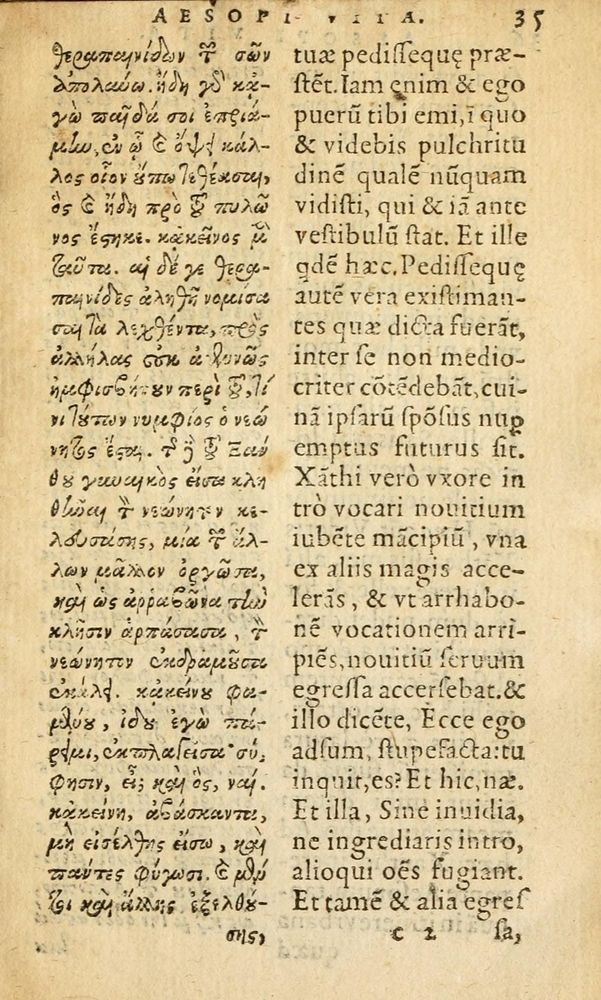 AESOPI VITA. 35
θεραπαινίδων τῶν σῶν
ἀπολαύω. ἤδη γὰρ κἀ-
γὼ παῖδά σοι ἐπριά-
μην, ἐν ᾧ καὶ ὄψει κάλ-
λος οἷον οὔπω τεθέασαι,
ὃς καὶ ἤδη πρὸ τοῦ πυλῶ
νος ἕστηκε. κἀκεῖνος μὲν
ταῦτα. αἱ δέ γε θερα-
παινίδες ἀληθῆ νομίσα
σαι τὰ λεχθέντα, πρὸς
ἀλλήλας οὐκ ἀγεννῶς
ἠμφισβήτουν περὶ τοῦ, τί
νι τούτων νυμφίος ὁ νεώ
νητος ἔσται. τῆς δὲ τοῦ Ξάν
θου γυναικὸς εἴσω κλη
θῆναι τὸν νεώνητον κε-
λευσάσης, μία τῶν ἄλ-
λων μᾶλλον ὀργῶσα,
καὶ ὡς ἀρραβῶνα τὴν
κλῆσιν ἁρπάσασα, τὸν
νεώνητον ἐκδραμοῦσα
ἐκάλει. κἀκείνου φα-
μένου, ἰδοὺ ἐγὼ πά-
ρειμι, ἐκπλαγεῖσα· σύ,
φησιν, εἶ; καὶ ὅς, ναί.
κἀκείνη, ἀβάσκαντα,
μὴ εἰσέλθῃς εἴσω, καὶ
πάντες φύγωσι. καὶ μέν
τοι καὶ ἄλλης ἐξελθού-
σης,
tuæ pedissequę præ-
stēt. Iam enim & ego
puerū tibi emi, ī quo
& videbis pulchritu
dinē qualē nūquam
vidisti, qui & iā ante
vestibulū stat. Et ille
qdē hæc. Pedissequę
autē vera existiman-
tes quæ dicta fuerāt,
inter se non medio-
criter cōtēdebāt, cui-
nā ipsarū spōsus nuꝑ
emptus futurus sit.
Xāthi verò vxore in
trò vocari nouitium
iubēte mācipiū, vna
ex aliis magis acce-
lerās, & vt arrhabo-
nē vocationem arri-
piēs, nouitiū seruum
egressa accersebat. &
illo dicēte, Ecce ego
adsum, stupefacta: tu
inquit, es? Et hic, næ.
Et illa, Sine inuidia,
ne ingrediaris intro,
alioqui oēs fugiant.
Et tamē & alia egres
c 2 sa,